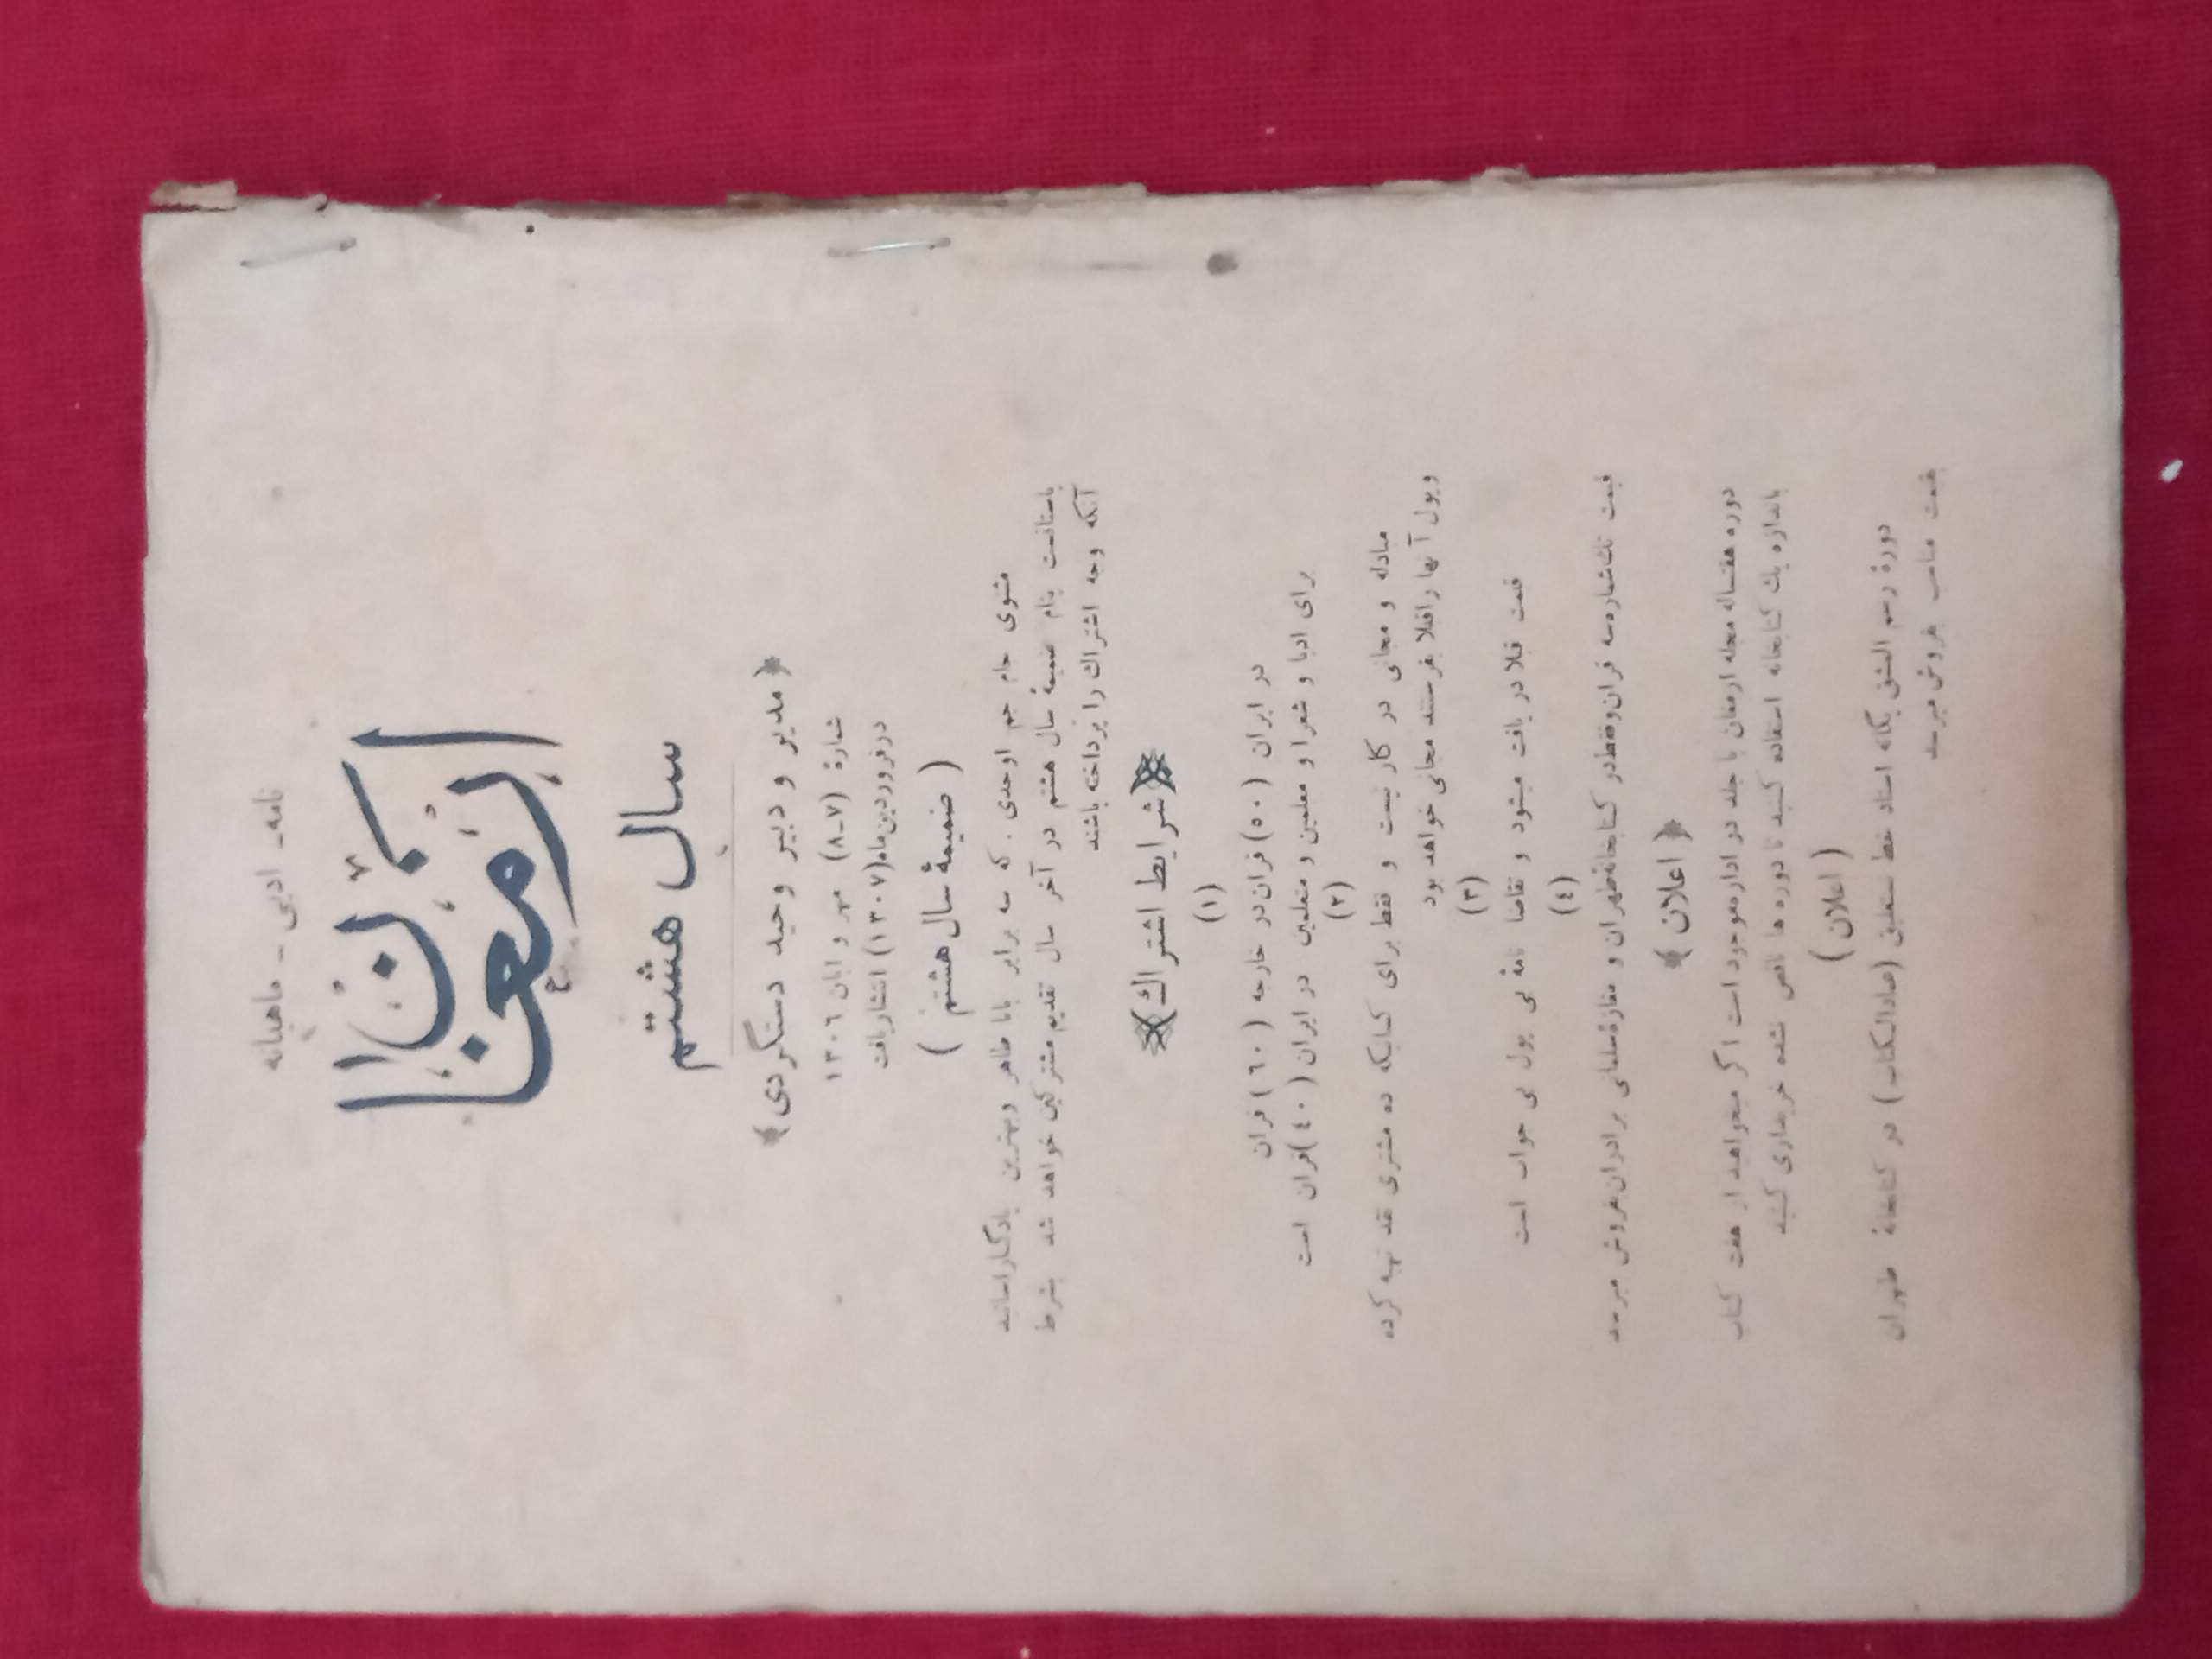 نامه ادبی - ماهیانه
ارمغان
سال هشتم
﴿ مدیر و دبیر وحید دستگردی ﴾
شمارهٔ (۷-۸) مهر و ابان ۱۳۰۶
در فروردین ماه (۱۳۰۷) انتشار یافت
( ضمیمهٔ سال هشتم )
مثنوی جام جم اوحدی . که سه برابر بابا طاهر وبهترین یادگار اساتید
باستانست بنام ضمیمهٔ سال هشتم در آخر سال تقدیم مشترکین خواهد شد بشرط
آنکه وجه اشتراك را پرداخته باشند
﴿شرایط اشتراك﴾
(۱)
در ایران (۵۰) قران در خارجه (۶۰) قران
برای ادبا و شعرا و معلمین و متعلمین در ایران (٤۰) قران است
(۲)
مبادله و مجانی در کار نیست و فقط برای کسانیکه ده مشتری نقد تهیه کرده
وپول آنها را قبلا بفرستند مجانی خواهد بود
(۳)
قیمت قبلا دریافت میشود و تقاضا نامهٔ بی پول بی جواب است
(٤)
قیمت تك شماره سه قران وفقط در کتابخانهٔ طهران و مغازهٔ سلمانی برادران بفروش میرسد
﴿ اعلان ﴾
دوره هفتساله مجله ارمغان با جلد در اداره موجود است اگر میخواهید از هفت کتاب
باندازه یك کتابخانه استفاده کنید تا دوره ها ناقص نشده خریداری کنید
( اعلان )
دورهٔ رسم المشق یگانه استاد خط نستعلیق (عمادالکتاب) در کتابخانهٔ طهران
بقیمت مناسب بفروش میرسد